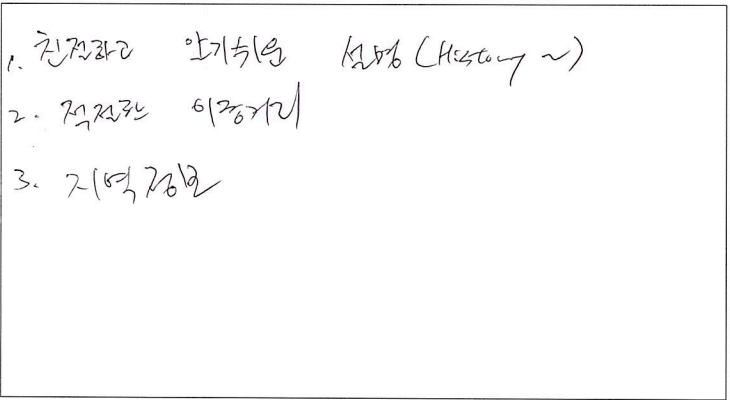 1. 친절하고 알기쉬운 설명 (History ~)
2. 적절한 이동거리
3. 지역정보